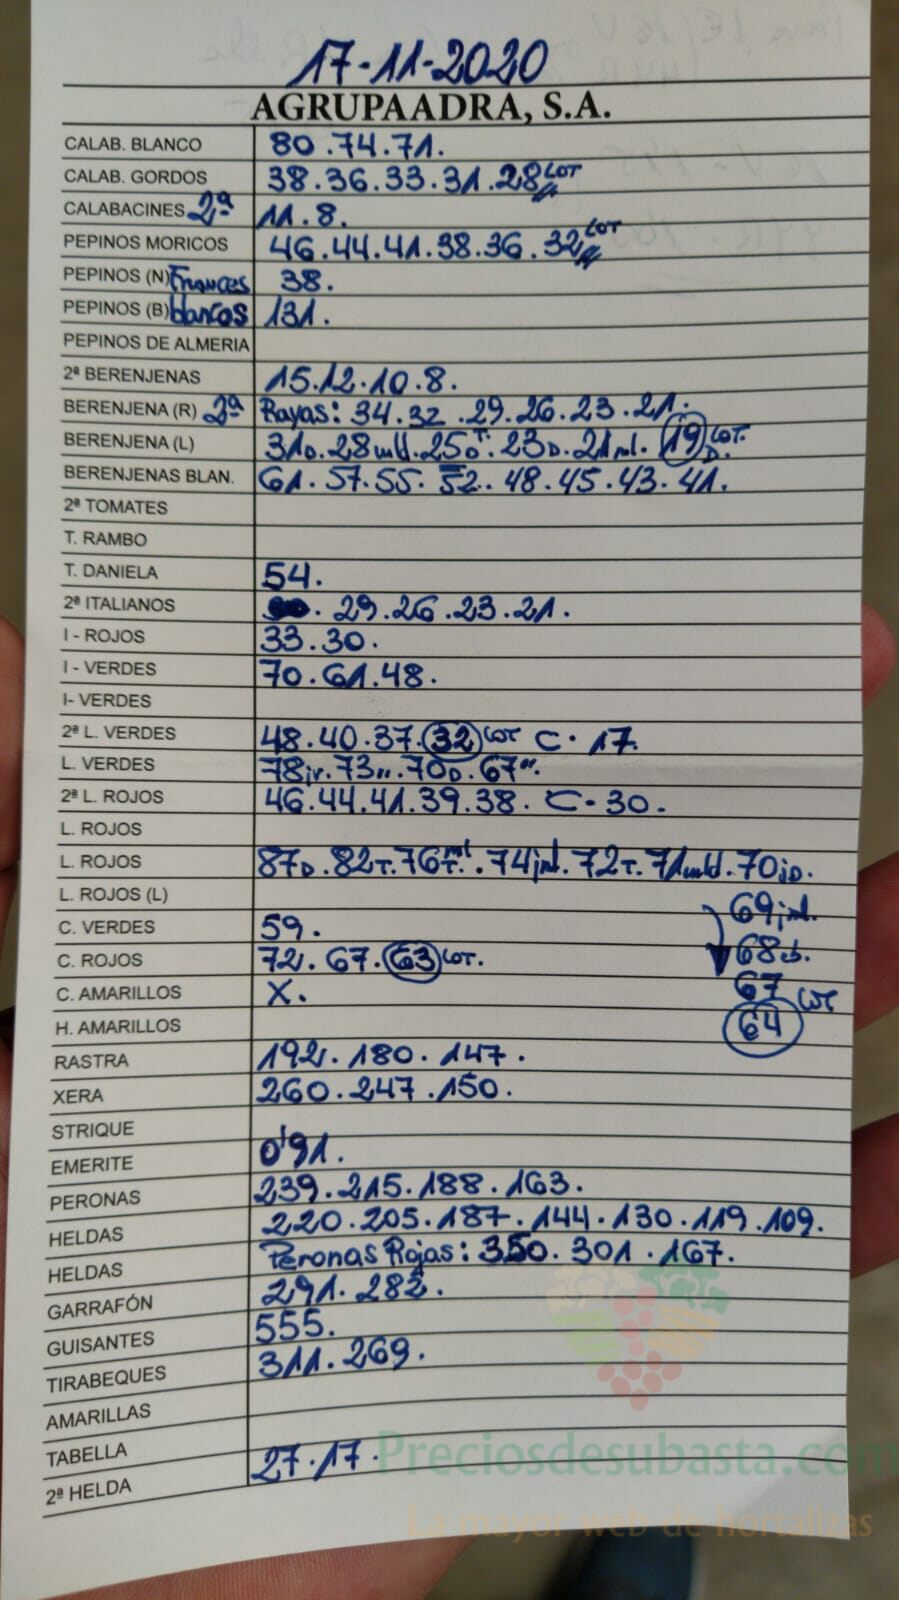 17-11-2020
AGRUPAADRA, S.A.
CALAB. BLANCO 80.74.71.
CALAB. GORDOS 38.36.33.31.28 LOT
CALABACINES 2ª 11.8.
PEPINOS MORICOS 46.44.41.38.36.32 LOT
PEPINOS (N) Frances 38.
PEPINOS (B) blancos 131.
PEPINOS DE ALMERIA
2ª BERENJENAS 15.12.10.8.
BERENJENA (R) 2ª Rayas: 34.32.29.26.23.21.
BERENJENA (L) 31D.28mld.25DT.23D.21ml.19D. LOT.
BERENJENAS BLAN. 61.57.55.52.48.45.43.41.
2ª TOMATES
T. RAMBO
T. DANIELA 54.
2ª ITALIANOS . 29.26.23.21.
I - ROJOS 33.30.
I - VERDES 70.61.48.
I- VERDES
2ª L. VERDES 48.40.37.32 LOT C. 17.
L. VERDES 78jv.73".70D.67".
2ª L. ROJOS 46.44.41.39.38. C. 30.
L. ROJOS
L. ROJOS 87D.82T.76T.ml.74jml.72T.71mld.70jD.
L. ROJOS (L) 69jml.
C. VERDES 59. 68
C. ROJOS 72.67.63 LOT. 67
C. AMARILLOS X. LOT
H. AMARILLOS 64
RASTRA 192.180.147.
XERA 260.247.150.
STRIQUE
EMERITE 0'91.
PERONAS 239.215.188.163.
HELDAS 220.205.187.144.130.119.109.
HELDAS Peronas Rojas: 350.301.167.
GARRAFÓN 291.282.
GUISANTES 555.
TIRABEQUES 311.269.
AMARILLAS
TABELLA
2ª HELDA 27.17.
Preciosdesubasta.com
La mayor web de hortalizas